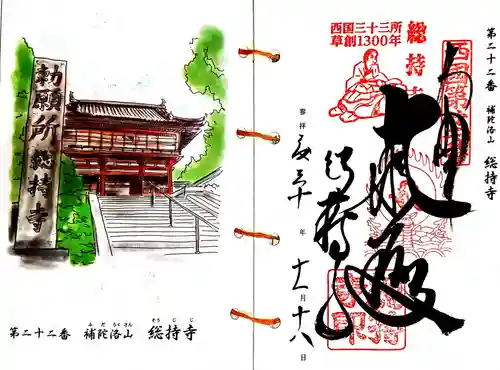 勅願所 総持寺
第二十二番 補陀洛山 総持寺
ふだらくさん そうじじ
西国三十三所
草創1300年
総持寺
第二十二番 補陀洛山 総持寺
参拝
年
十一月十八日
大悲殿
総持寺